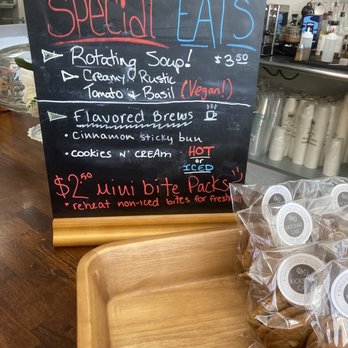 Special EATS
Rotating Soup! $3.50
Creamy Rustic
Tomato & Basil (Vegan!)
Flavored Brews
• Cinnamon sticky bun
• Cookies N' CREAM HOT
or
ICED
$2.50 mini bite Packs
• reheat non-iced bites for fresh